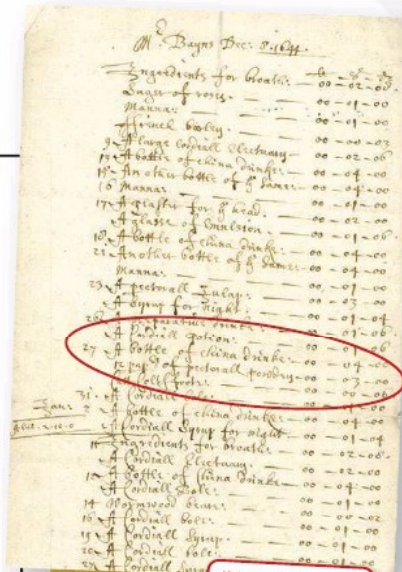 Mr Bayns Dec: 8. 1644.
Ingredients for broath. — 00 - 02 - 06
Suger of roses. — 00 - 01 - 00
Manna: — 00 - 01 - 00
ffrench barley. — 00 - 00 - 03
9 A large cordiall Electuary — 00 - 02 - 06
13 A bottle of china drinke: — 00 - 04 - 00
15 An other bottle of ye same: — 00 - 04 - 00
16 Manna: — 00 - 01 - 00
17 A plaster for ye head. — 00 - 02 - 00
A glasse of Emulsion. — 00 - 01 - 06
18 A bottle of china drinke — 00 - 04 - 00
21 Another bottle of ye same — 00 - 04 - 00
Manna: — 00 - 01 - 00
23 A pectorall Iulap: — 00 - 03 - 00
A syrup for night. — 00 - 01 - 04
26 drinke: — 00 - 01 - 06
A Cordiall potion: — 00 - 01 - 06
27 A bottle of china drinke: — 00 - 04 - 00
12 pap: of pectorall powders — 00 - 03 - 00
Coltsfoote:
31 A Cordiall
Jan: 2 A bottle of china drinke: — 00 - 04 - 00
A Cordiall Syrup for night — 00 - 01 - 04
11 Ingredients for broath: — 00 - 02 - 06
A Cordiall Electuary. — 00 - 02 - 00
12 A bottle of China drinke — 00 - 04 - 00
A Cordiall Bole: — 00 - 01 - 00
14 Wormwood beere:
16 A Cordiall bole:
19 A Cordiall Syrup.
20 A Cordiall bole:
A Cordiall